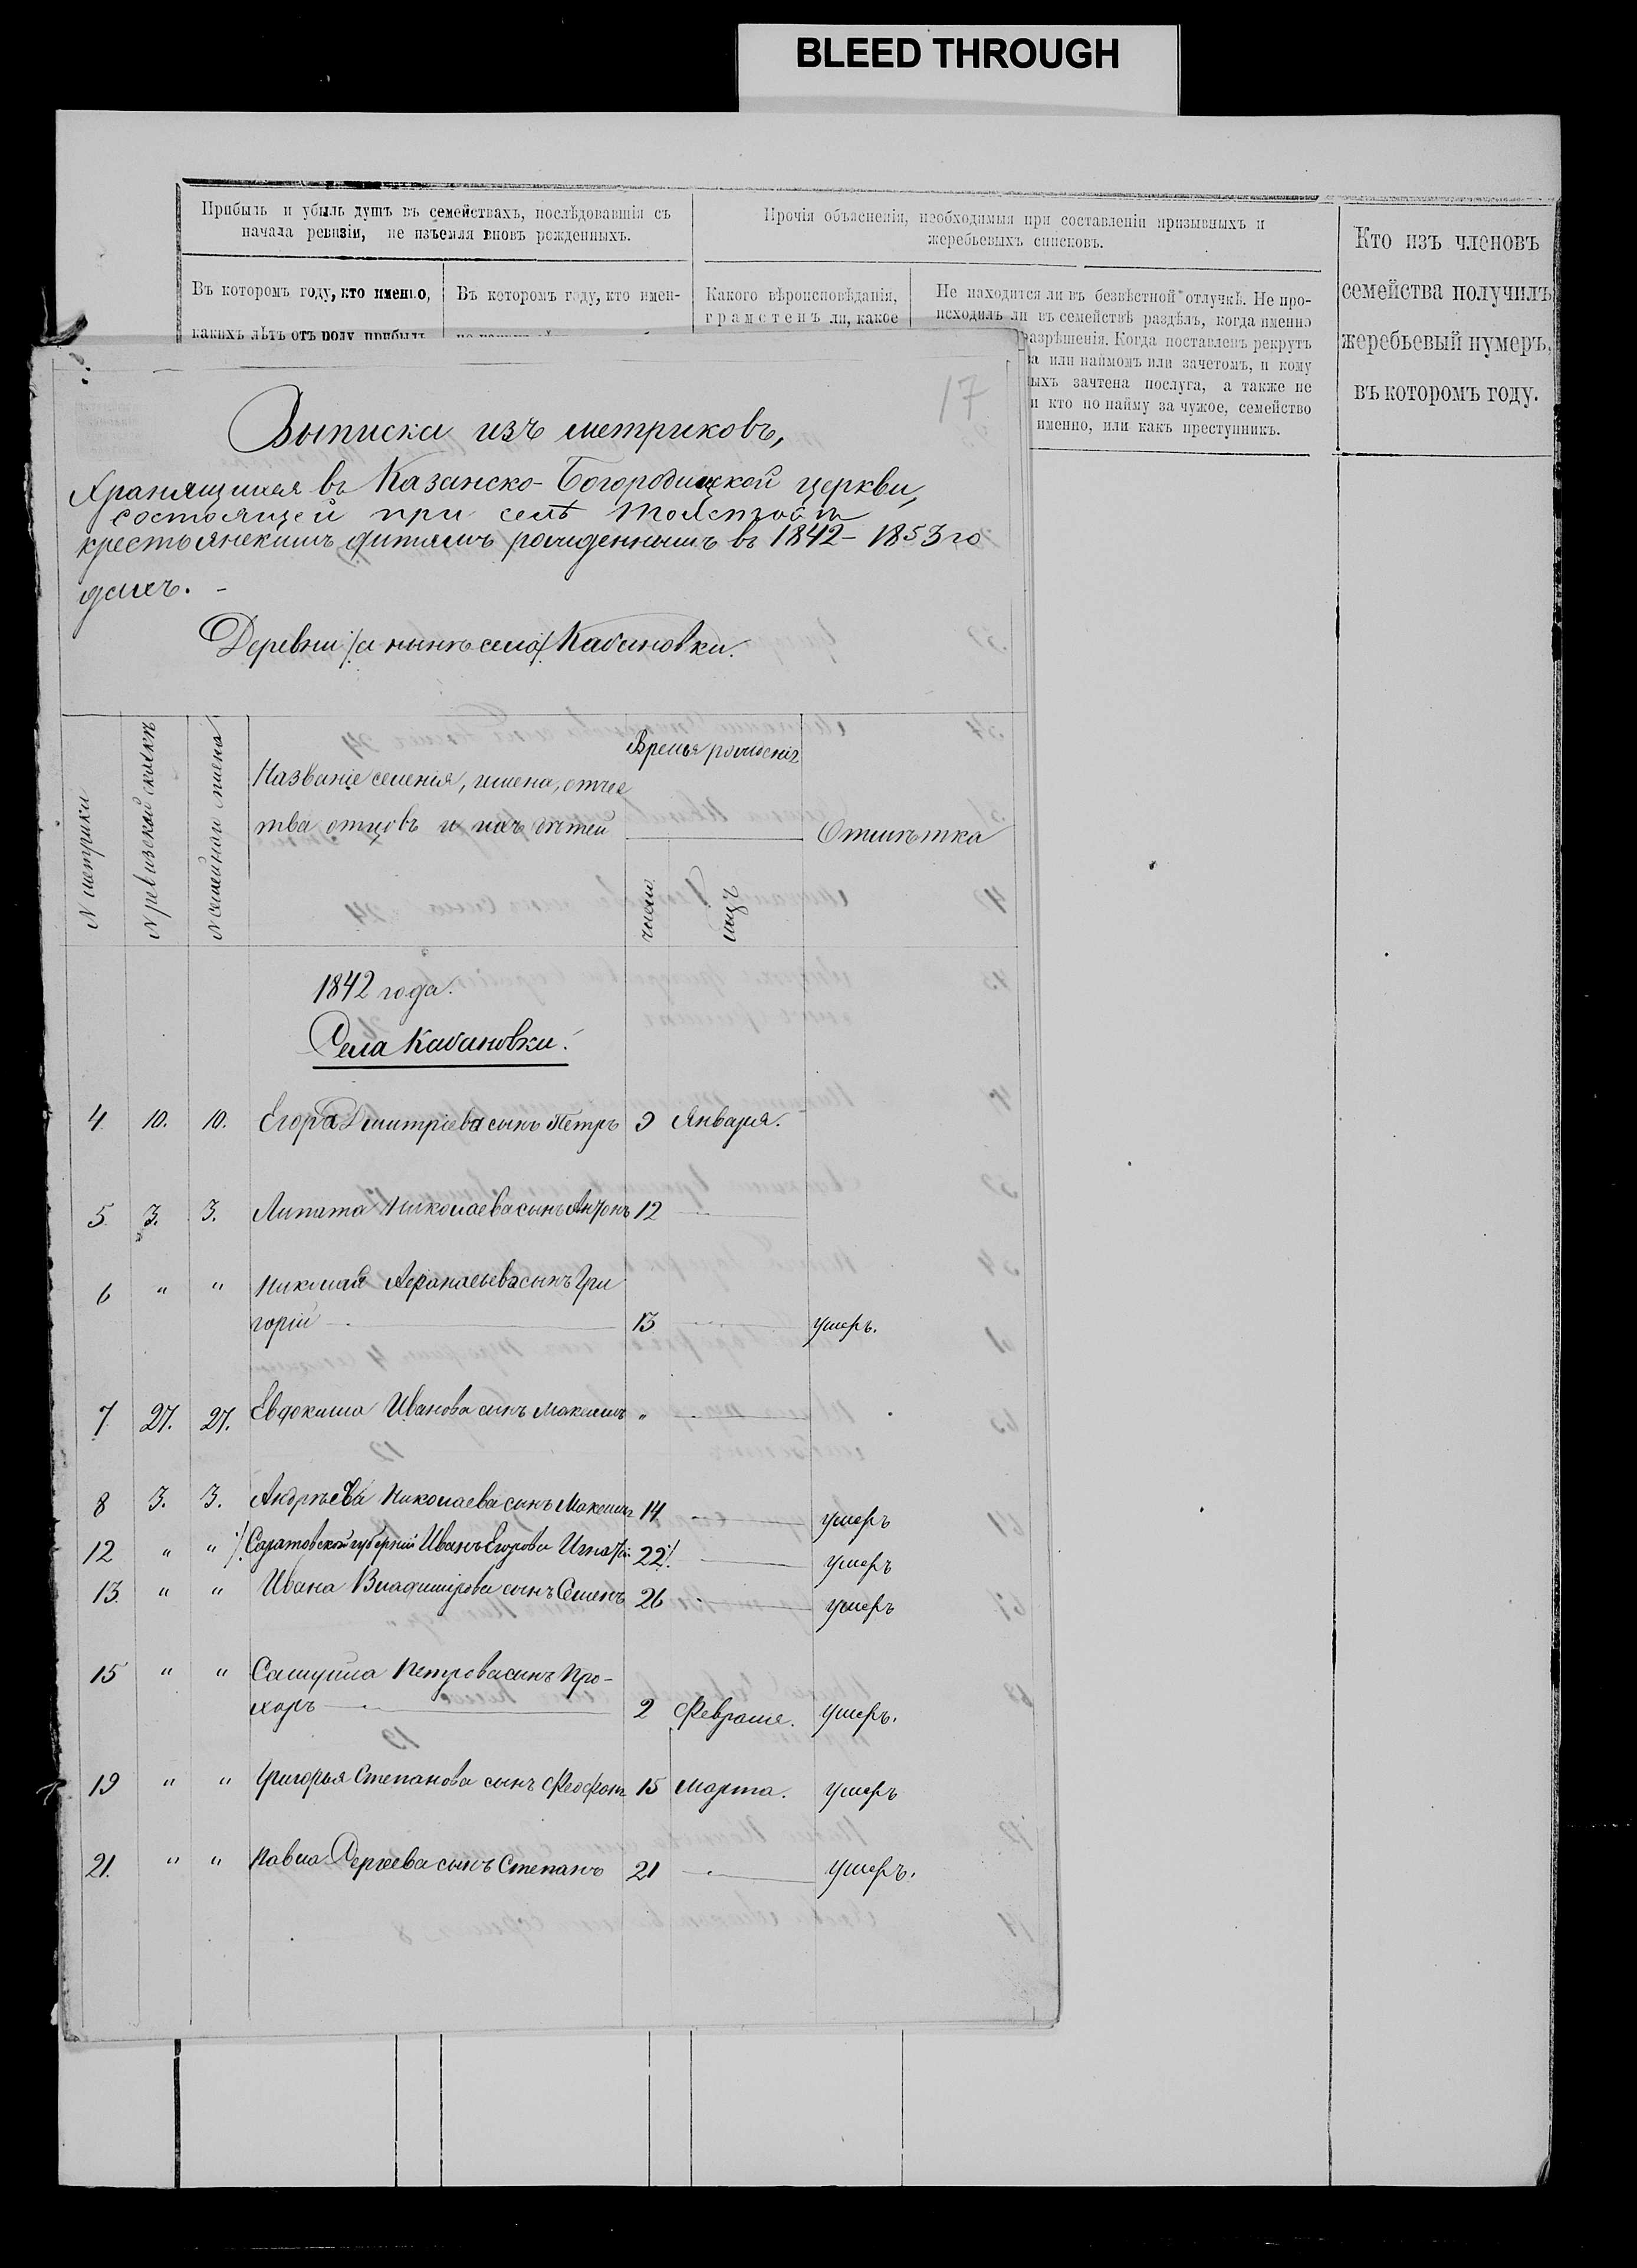 BLEED THROUGH
Прибыль и убыль душъ въ семействахъ, послѣдовавшія съ
начала ревизіи, не изъемля вновь рожденныхъ.
Прочія объясненія, необходимыя при составленіи призывныхъ и
жеребьевыхъ списковъ.
Кто изъ членовъ
семейства получилъ
жеребьевый нумеръ,
въ которомъ году.
Въ которомъ году, кто именно,
какихъ лѣтъ отъ роду прибылъ
Въ которомъ году, кто имен-
Какого вѣроисповѣданія,
грамотенъ ли, какое
Не находится ли въ безвѣстной отлучкѣ. Не про-
исходилъ ли въ семействѣ раздѣлъ, когда именно
разрѣшенія. Когда поставленъ рекрутъ
или наймомъ или зачетомъ, и кому
зачтена послуга, а также не
и кто по найму за чужое, семейство
именно, или какъ преступникъ.
17
Выписка изъ метриковъ,
хранящихся въ Казанско-Богородицкой церкви,
состоящей при селѣ
крестьянскимъ дитямъ рожденнымъ въ 1842-1853 го
дахъ. -
Деревни /а нынѣ села/ Кабановки.
N метрики
N ревизской сказкѣ
N семейнаго списка
Названіе селенія, имена, отчес
тва отцовъ и ихъ дѣтей
Время рожденія
число
мцъ
Отмѣтка
1842 года.
Села Кабановки.
4. 10. 10. Егора Дмитріева сынъ Петръ 9 Января.
5. 3. 3. Липата Николаева сынъ Антонъ 12 —
6 " " Николая Афанасьева сынъ Гри
горій — 13 — умеръ.
7. 27. 27. Евдокима Иванова сынъ Максимъ " —
8 3. 3. Андрѣева Николаева сынъ Максимъ 14 — умеръ
12 " " /Саратовской губерніи Иванъ Егорова Игнатій 22/. — умеръ
13. " " Ивана Владимірова сынъ Семенъ 26 — умеръ
15 " " Самуила Петрова сынъ Про-
хоръ — 2 Февраля. умеръ.
19 " " Григорья Степанова сынъ Феофанъ 15 Марта. умеръ
21. " " Павла Сергѣева сынъ Степанъ 21 — умеръ.